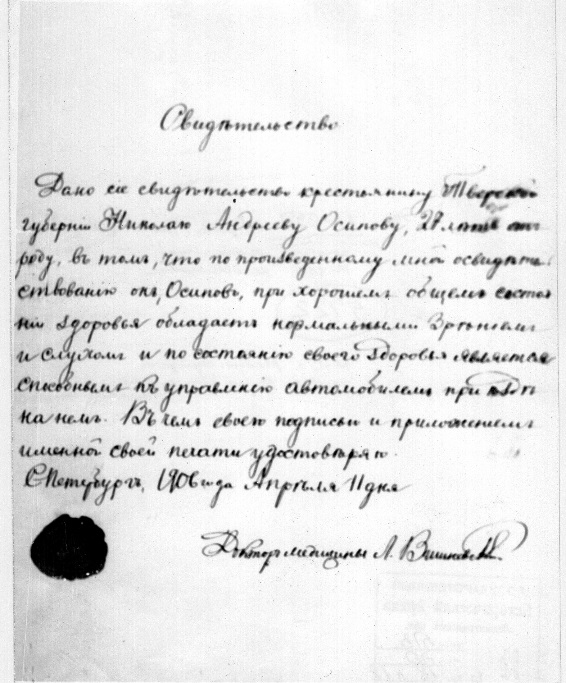 Свидѣтельство
Дано сіе свидѣтельство крестьянину Тверской
губерніи Николаю Андрееву Осипову, 27 лѣтъ отъ
роду, въ томъ, что по произведенному мной освидѣтель
ствованію онъ, Осиповъ, при хорошемъ общемъ состоя
ніи здоровья обладаетъ нормальными зрѣніемъ
и слухомъ и по состоянію своего здоровья является
способнымъ къ управленію автомобилемъ при ѣздѣ
на немъ. Въ чемъ своею подписью и приложеніемъ
именной своей печати удостовѣряю.
СПетербургъ, 1906 года Апрѣля 11 дня
Докторъ медицины А.